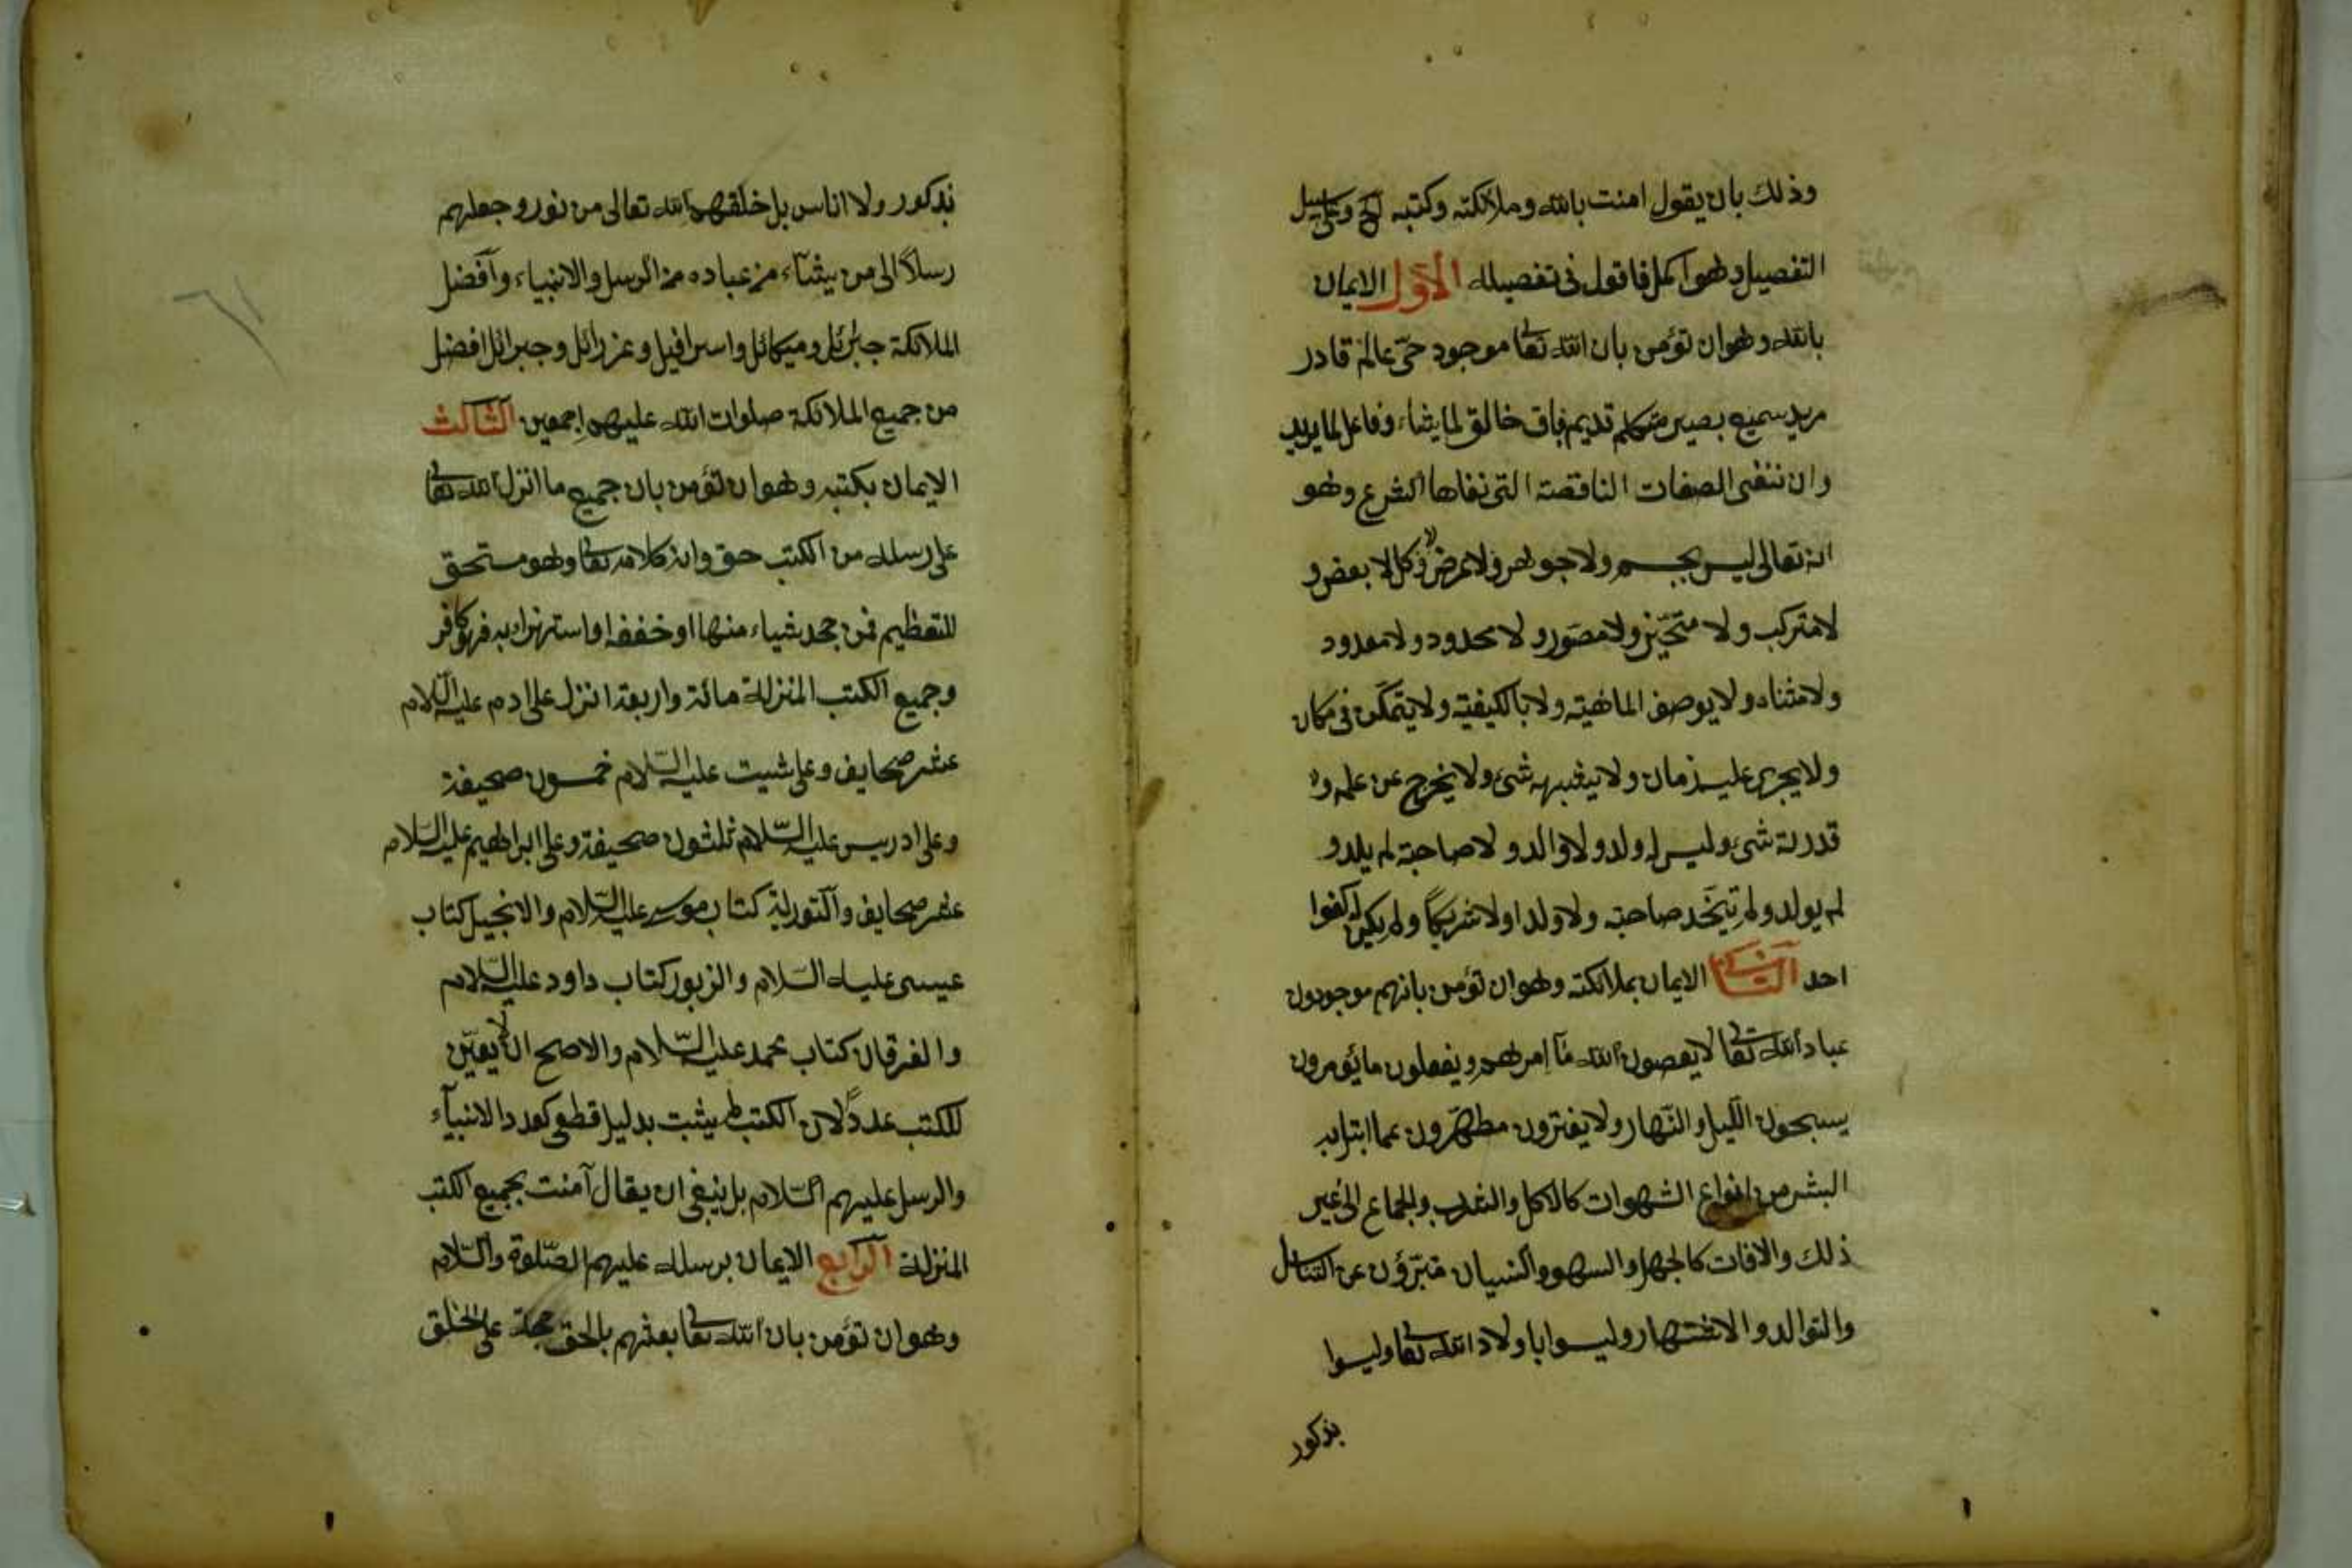 وذلك بان يقول امنت بالله وملائكته وكتبه الخ وعلى سبيل
التفصيل وهو اكمل فاقول فى تفصيله الاول الايمان
بالله وهو ان تؤمن بان الله تعا موجود حىّ عالم قادر
مريد سميع بصير متكلم قديم باق خالق لما يشاء وفاعل لما يريد
وان ننفى الصفات الناقصة التى نفاها الشرع وهو
انه تعالى ليس بجسم ولا جوهر ولا عرض ولا كل ولا بعض و
لا متركب ولا متحيّز ولا مصوّر ولا محدود ولا معدود
ولا متناه ولا يوصف الماهيّة ولا بالكيفيّة ولا يتمكّن فى مكان
ولا يجرى عليه زمان ولا يشبهه شئ ولا يخرج عن علمه و
قدرته شئ وليس له ولد ولا والد ولا صاحبة لم يلد و
لم يولد ولم يتّخذ صاحبة ولا ولدا ولا شريكًا ولم يكن له كفوا
احد الثانى الايمان بملائكته وهو ان تؤمن بانهم موجودون
عباد الله تعا لا يعصون الله مآ امرهم ويفعلون ما يؤمرون
يسبحون الّيل والنّهار ولا يفترون مطهّرون عما ابتلى به
البشر من انواع الشهوات كالاكل والشرب والجماع الى غير
ذلك والافات كالجهل والسهو والنسيان متبرّؤن عن التناسل
والتوالد والاشتهار وليسوا باولاد الله تعا وليسوا
بذكور
بذكور ولا اناس بل خلقهم الله تعالى من نور وجعلهم
رسلاً الى من يشآء من عباده من الرسل والانبياء وافضل
الملائكة جبرئل وميكائل واسرافيل وعزرائل وجبرائل افضل
من جميع الملائكة صلوات الله عليهم اجمعين الثالث
الايمان بكتبه وهو ان تؤمن بان جميع ما انزل الله تعا
على رسله من الكتب حق وانه كلامه تعا وهو مستحق
للتعظيم فمن جحد شياء منها او خففه او استهزاء به فهو كافر
وجميع الكتب المنزلة مائة واربعة انزل على ادم عليه السّلام
عشر صحايف وعلى شيت عليه السّلام خمسون صحيفة
وعلى ادريس عليه السّلام ثلثون صحيفة وعلى ابراهيم عليه السّلام
عشر صحايف والتورية كتاب موسى عليه السّلام والانجيل كتاب
عيسى عليه السّلام والزبور كتاب داود عليه السّلام
والفرقان كتاب محمد عليه السّلام والاصح ان لا يعيّن
للكتب عددًا لان الكتب لم يثبت بدليل قطعى كعدد الانبيآء
والرسل عليهم السّلام بل ينبغى ان يقال آمنت بجميع الكتب
المنزلة الرابع الايمان برسله عليهم الصّلوة والسّلام
وهو ان تؤمن بان الله تعا بعثهم بالحق حجة على الخلق